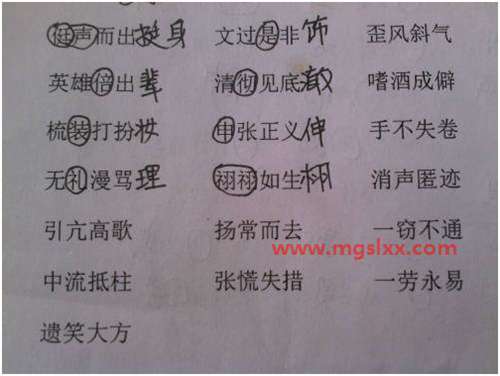 挺声而出 挺身 文过是非 饰 歪风斜气
英雄倍出 辈 清彻见底 澈 嗜酒成僻
梳装打扮 妆 申张正义 伸 手不失卷
无礼漫骂 理 祤祤如生 栩 消声匿迹
引亢高歌 扬常而去 一窃不通
www.mgslxx.com
中流抵柱 张慌失措 一劳永易
遗笑大方